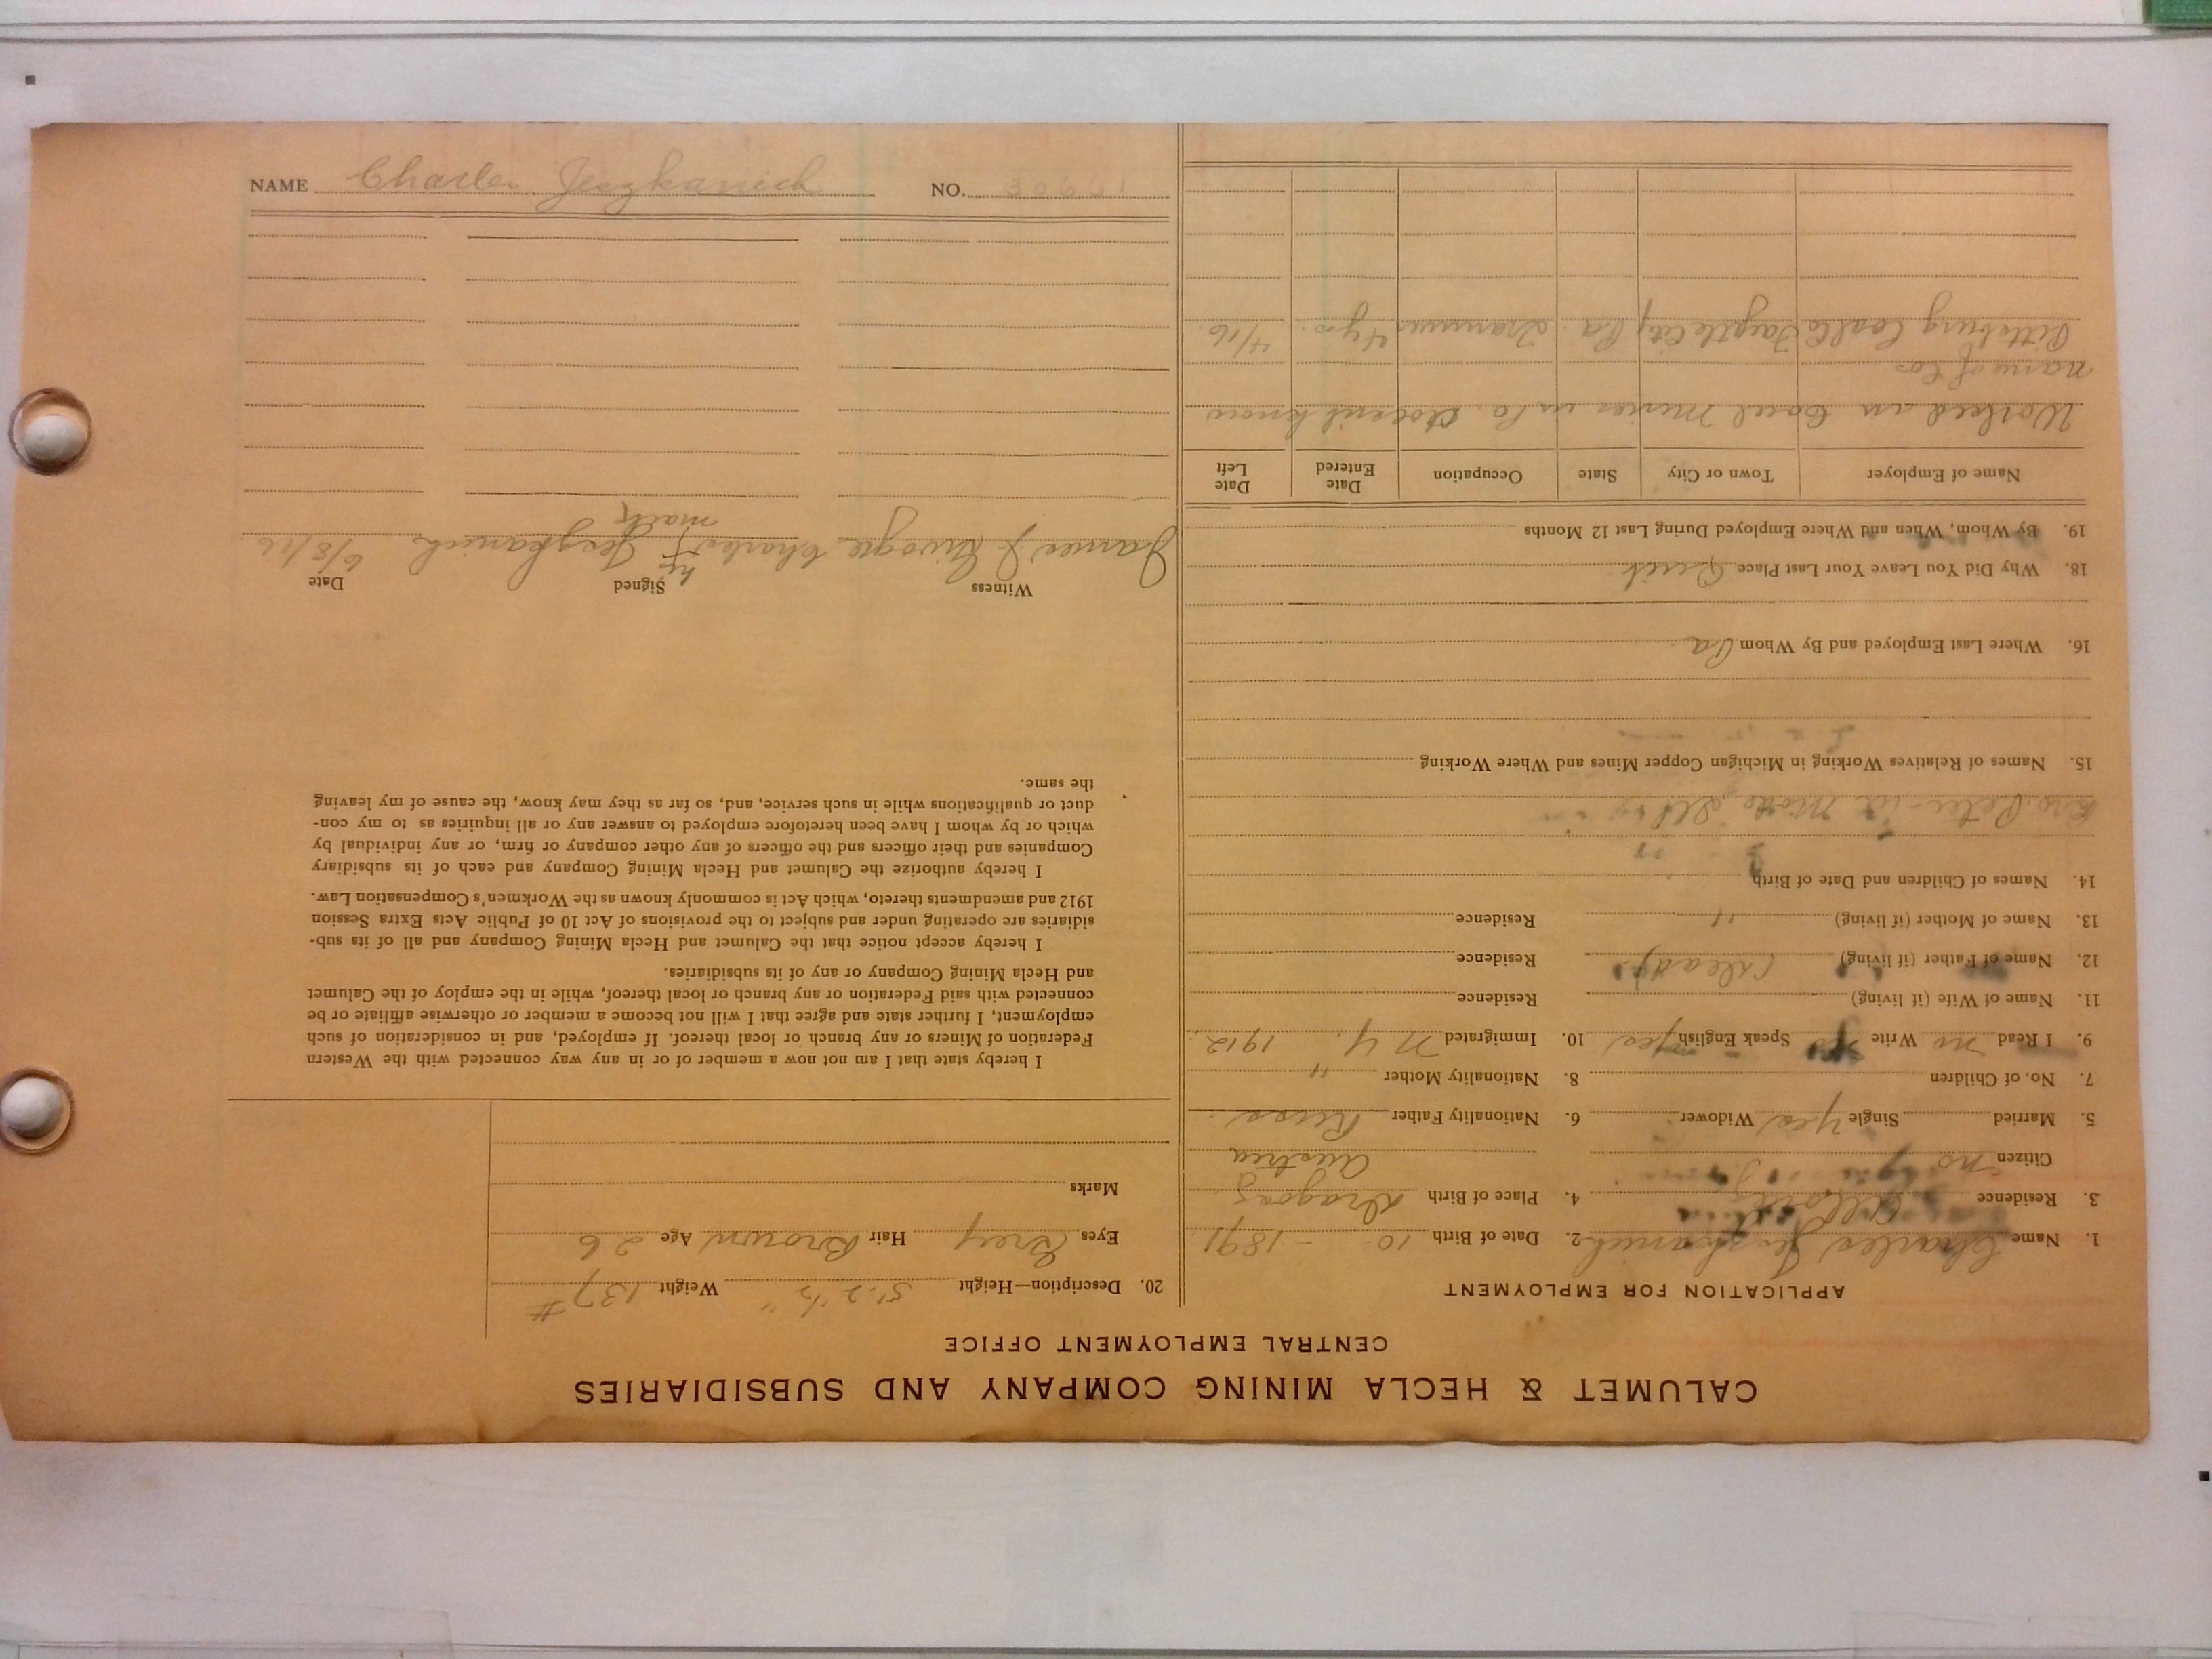 NAME Charles Jeszkanich NO.
CALUMET & HECLA MINING COMPANY AND SUBSIDIARIES
CENTRAL EMPLOYMENT OFFICE
APPLICATION FOR EMPLOYMENT
1. Name Charles Jeszkanich 2. Date of Birth 10 - 1891
3. Residence 4. Place of Birth
Citizen no Austria
5. Married Single Yes Widower 6. Nationality Father Russ
7. No. of Children 8. Nationality Mother "
9. I Read no Write no Speak English yes 10. Immigrated N.Y. 1912
11. Name of Wife (if living) Residence
12. Name of Father (if living) (Dead) Residence
13. Name of Mother (if living) " Residence
14. Names of Children and Date of Birth
Bro. Peter
15. Names of Relatives Working in Michigan Copper Mines and Where Working
16. Where Last Employed and By Whom Pa
18. Why Did You Leave Your Last Place Quit
19. By Whom, When and Where Employed During Last 12 Months
Name of Employer Town or City State Occupation Date Entered Date Left
Worked in Coal Mines in Pa. doesn't know
name of Co
Pittsburg Coal Co Fayette City Pa. Trammer 4 yrs. 4/16
20. Description—Height 5' 2 1/2" Weight 137 #
Eyes Grey Hair Brown Age 26
Marks
I hereby state that I am not now a member of or in any way connected with the Western
Federation of Miners or any branch or local thereof. If employed, and in consideration of such
employment, I further state and agree that I will not become a member or otherwise affiliate or be
connected with said Federation or any branch or local thereof, while in the employ of the Calumet
and Hecla Mining Company or any of its subsidiaries.
I hereby accept notice that the Calumet and Hecla Mining Company and all of its sub-
sidiaries are operating under and subject to the provisions of Act 10 of Public Acts Extra Session
1912 and amendments thereto, which Act is commonly known as the Workmen's Compensation Law.
I hereby authorize the Calumet and Hecla Mining Company and each of its subsidiary
Companies and their officers and the officers of any other company or firm, or any individual by
which or by whom I have been heretofore employed to answer any or all inquiries as to my con-
duct or qualifications while in such service, and, so far as they may know, the cause of my leaving
the same.
Witness Signed Date
his
James J. Charles X Jeszkanich 6/8/16
mark